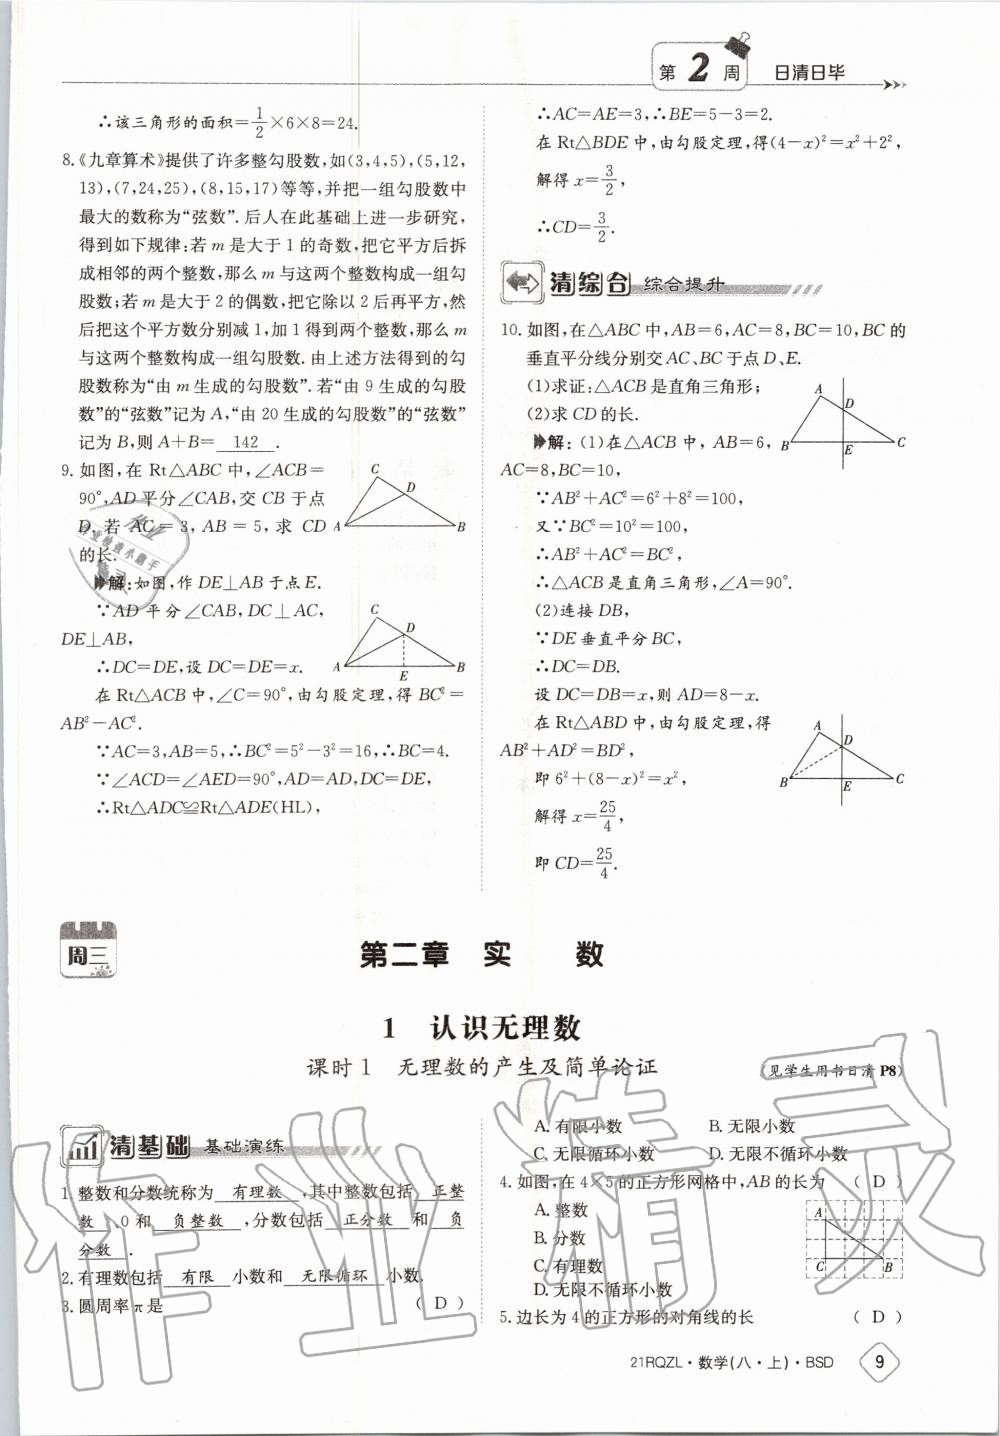 第2周 日清日毕
∴该三角形的面积=1/2×6×8=24.
8.《九章算术》提供了许多整勾股数,如(3,4,5),(5,12,
13),(7,24,25),(8,15,17)等等,并把一组勾股数中
最大的数称为“弦数”.后人在此基础上进一步研究,
得到如下规律:若m是大于1的奇数,把它平方后拆
成相邻的两个整数,那么m与这两个整数构成一组勾
股数;若m是大于2的偶数,把它除以2后再平方,然
后把这个平方数分别减1,加1得到两个整数,那么m
与这两个整数构成一组勾股数.由上述方法得到的勾
股数称为“由m生成的勾股数”.若“由9生成的勾股
数”的“弦数”记为A,“由20生成的勾股数”的“弦数”
记为B,则A+B= 142 .
9.如图,在Rt△ABC中,∠ACB=
90°,AD平分∠CAB,交CB于点
D.若AC=3,AB=5,求CD
的长.
C
D
A
B
解:如图,作DE⊥AB于点E.
∵AD平分∠CAB,DC⊥AC,
DE⊥AB,
C
D
A
E
B
∴DC=DE,设DC=DE=x.
在Rt△ACB中,∠C=90°,由勾股定理,得BC²=
AB²-AC².
∵AC=3,AB=5,∴BC²=5²-3²=16,∴BC=4.
∵∠ACD=∠AED=90°,AD=AD,DC=DE,
∴Rt△ADC≌Rt△ADE(HL),
∴AC=AE=3,∴BE=5-3=2.
在Rt△BDE中,由勾股定理,得(4-x)²=x²+2²,
解得x=3/2,
∴CD=3/2.
清综合 综合提升
10.如图,在△ABC中,AB=6,AC=8,BC=10,BC的
垂直平分线分别交AC、BC于点D、E.
(1)求证:△ACB是直角三角形;
(2)求CD的长.
A
D
B
E
C
解:(1)在△ACB中,AB=6,
AC=8,BC=10,
∵AB²+AC²=6²+8²=100,
又∵BC²=10²=100,
∴AB²+AC²=BC²,
∴△ACB是直角三角形,∠A=90°.
(2)连接DB,
∵DE垂直平分BC,
∴DC=DB.
设DC=DB=x,则AD=8-x.
在Rt△ABD中,由勾股定理,得
AB²+AD²=BD²,
A
D
B
E
C
即6²+(8-x)²=x²,
解得x=25/4,
即CD=25/4.
周三
第二章 实 数
1 认识无理数
课时1 无理数的产生及简单论证
(见学生用书日清P8)
清基础 基础演练
1.整数和分数统称为 有理数 ,其中整数包括 正整
数 、0和 负整数 ,分数包括 正分数 和 负
分数 .
2.有理数包括 有限 小数和 无限循环 小数.
3.圆周率π是 ( D )
A.有限小数 B.无限小数
C.无限循环小数 D.无限不循环小数
4.如图,在4×5的正方形网格中,AB的长为 ( D )
A.整数
B.分数
C.有理数
D.无限不循环小数
A
C
B
5.边长为4的正方形的对角线的长 ( D )
21RQZL·数学(八·上)·BSD 9
作业精灵